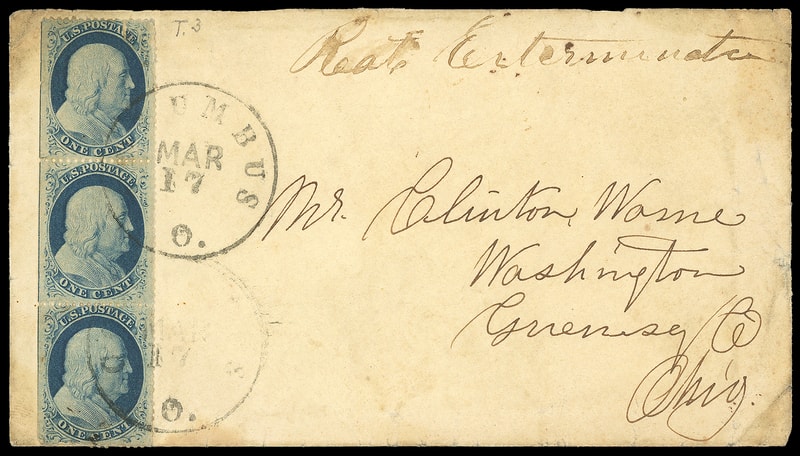 T. 3
Rat Exterminator
U.S. POSTAGE
ONE CENT
U.S. POSTAGE
ONE CENT
U.S. POSTAGE
ONE CENT
UMBUS
MAR
17
O.
MAR
17
S
O.
Mr. Clinton Warne
Washington
Guernsey Co
Ohio.